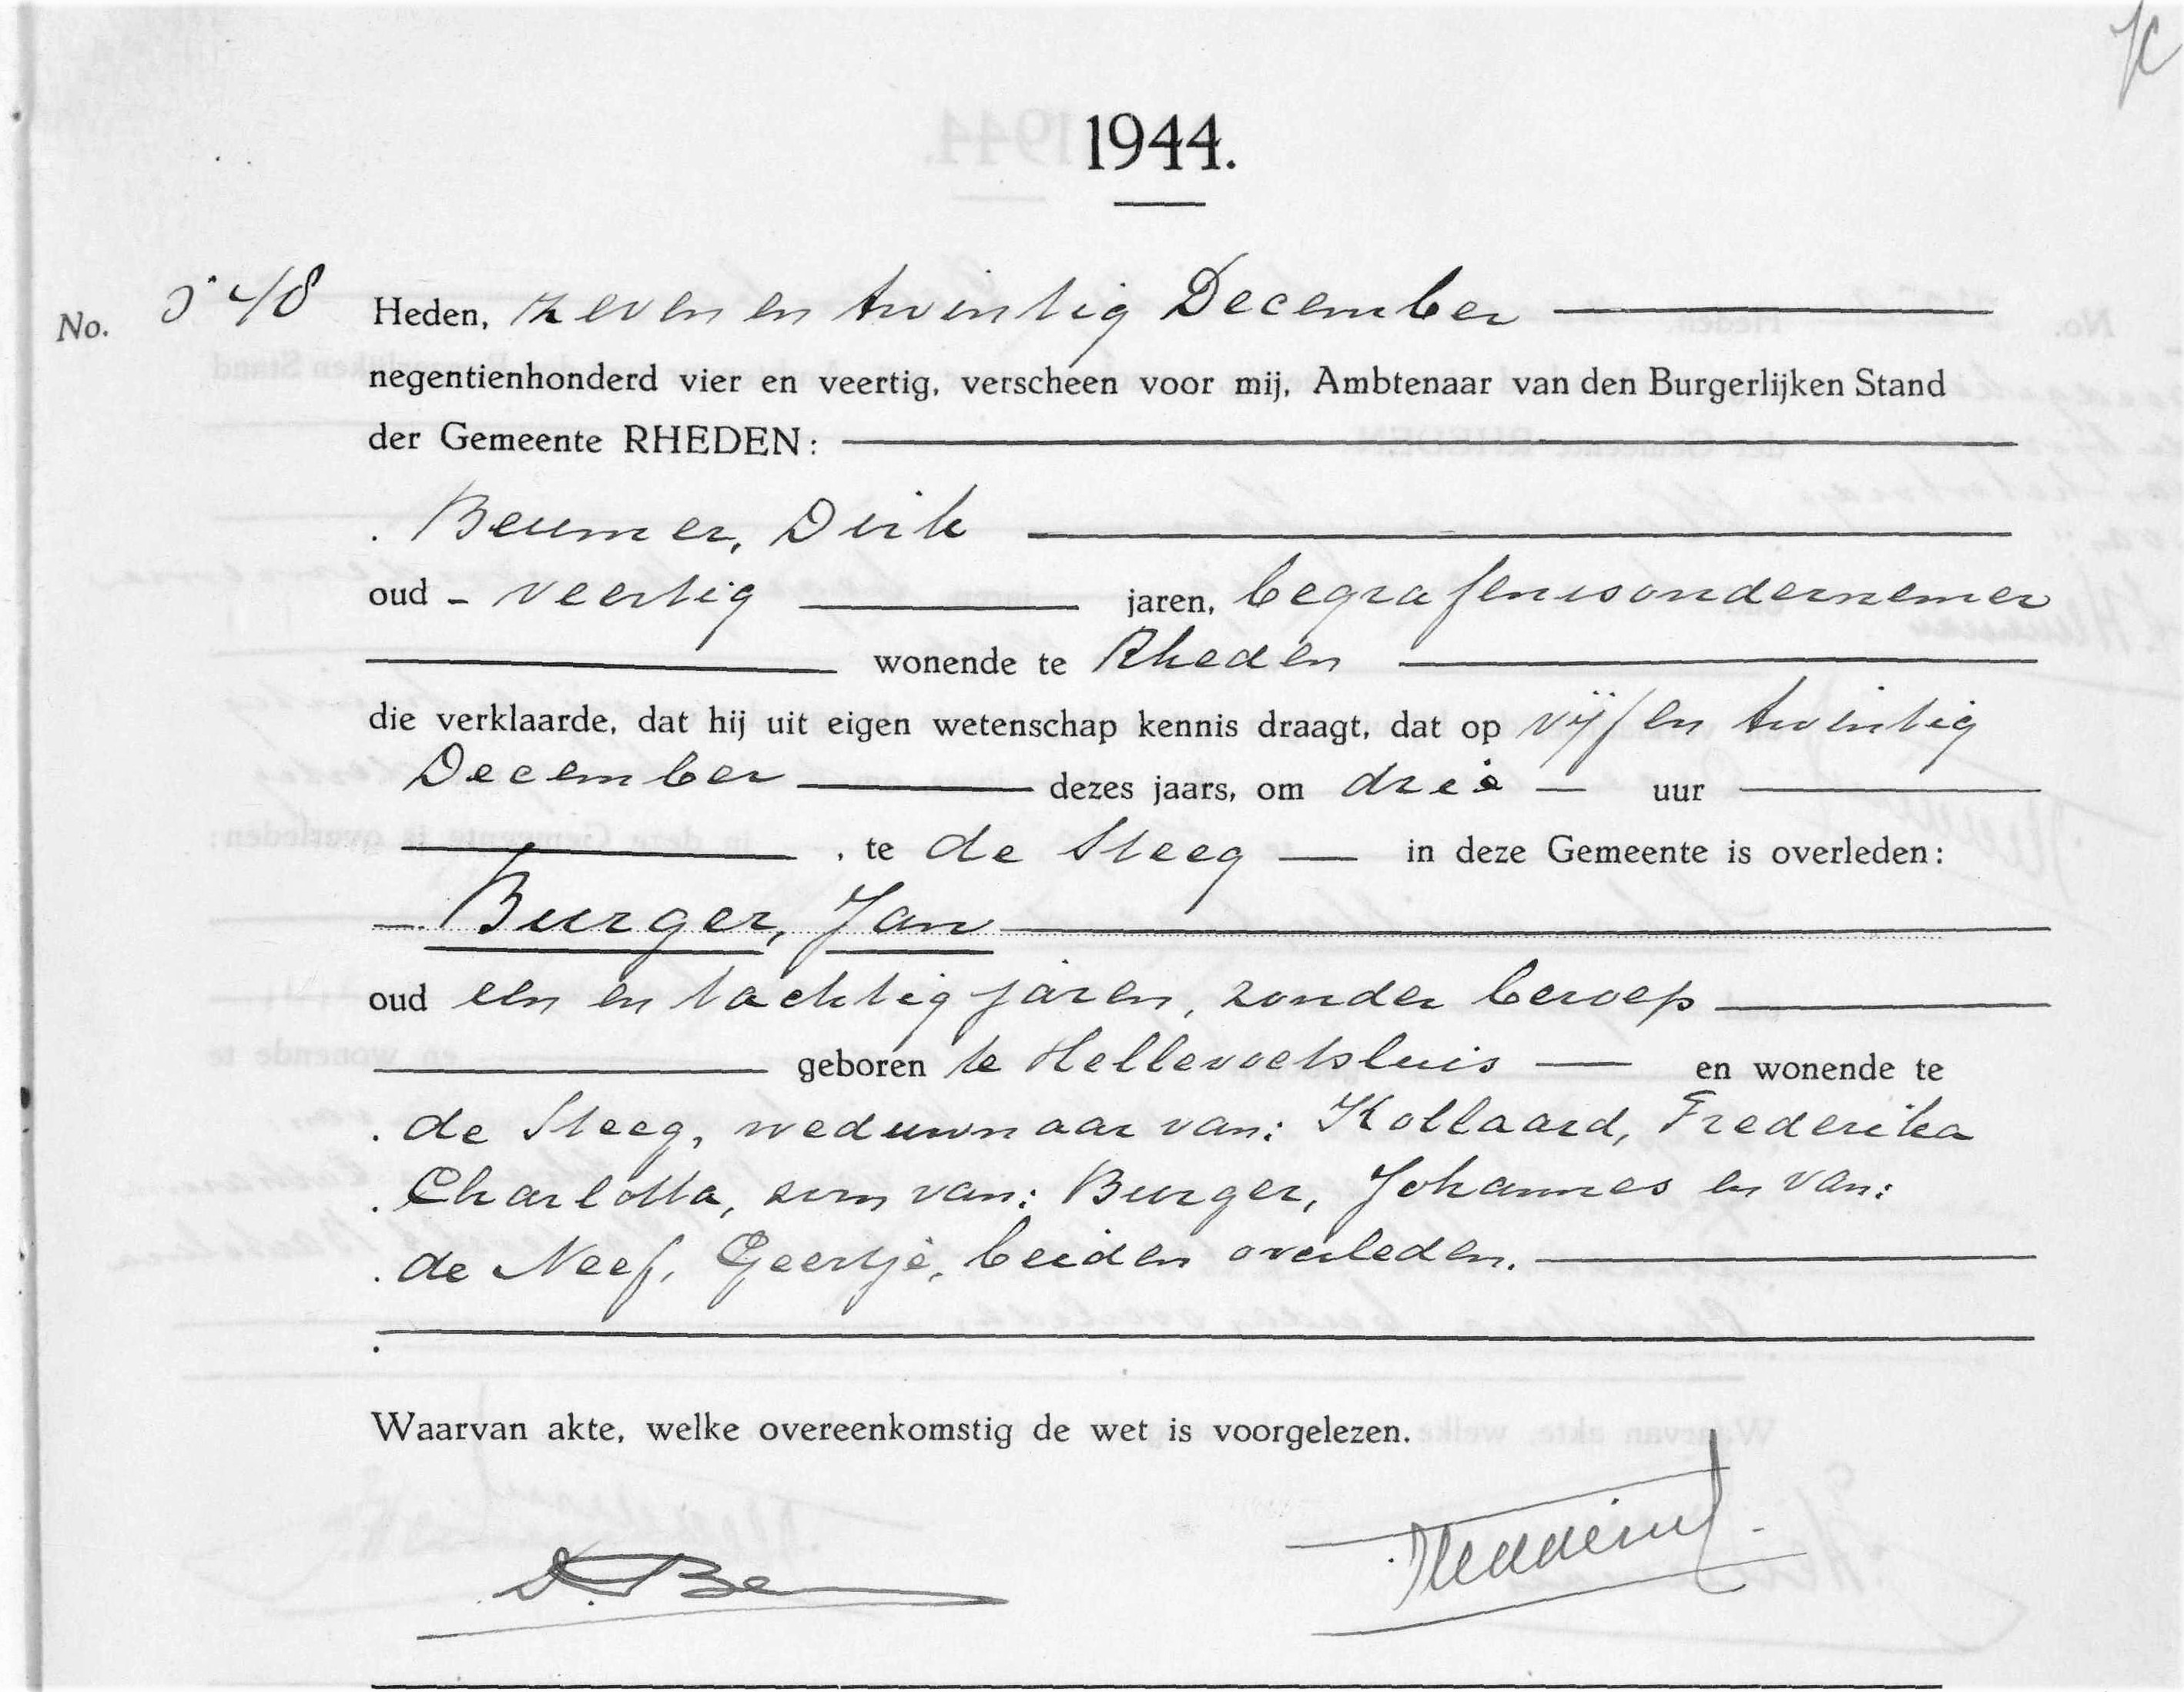 1944.
No. 548 Heden, zeven en twintig December
negentienhonderd vier en veertig, verscheen voor mij, Ambtenaar van den Burgerlijken Stand
der Gemeente RHEDEN:
Beumer, Dirk
oud veertig jaren, begrafenisondernemer
wonende te Rheden
die verklaarde, dat hij uit eigen wetenschap kennis draagt, dat op vijf en twintig
December dezes jaars, om drie uur
, te de Steeg in deze Gemeente is overleden:
Burger, Jan
oud een en tachtig jaren, zonder beroep
geboren te Hellevoetsluis en wonende te
de Steeg, weduwnaar van: Kollaard, Frederika
Charlotta, zoon van: Burger, Johannes en van:
de Neef, Geertje, beiden overleden.
Waarvan akte, welke overeenkomstig de wet is voorgelezen.
D. Be